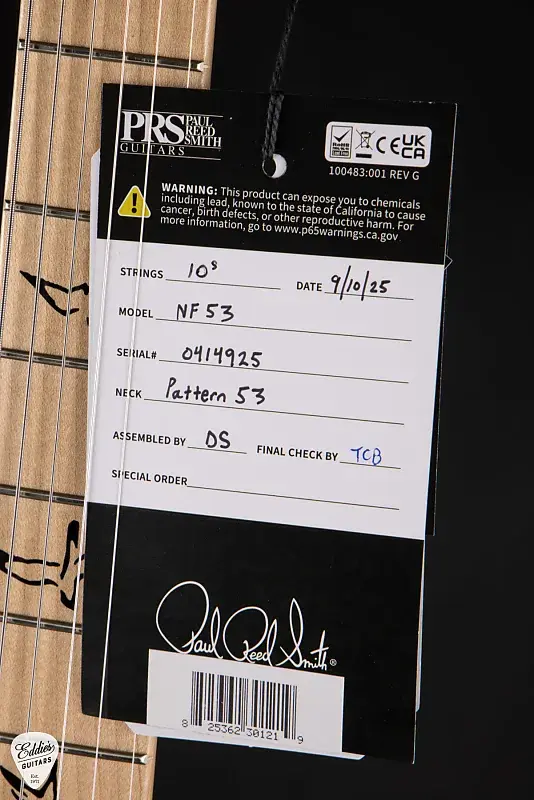 PRS PAUL
REED
SMITH
GUITARS
RoHS
CE UK
CA
100483:001 REV G
WARNING: This product can expose you to chemicals
including lead, known to the state of California to cause
cancer, birth defects, or other reproductive harm. For
more information, go to www.p65warnings.ca.gov
STRINGS 10s DATE 9/10/25
MODEL NF 53
SERIAL# 0414925
NECK Pattern 53
ASSEMBLED BY DS FINAL CHECK BY TCB
SPECIAL ORDER
Paul Reed Smith®
8 25362 30121 9
Eddie's
GUITARS